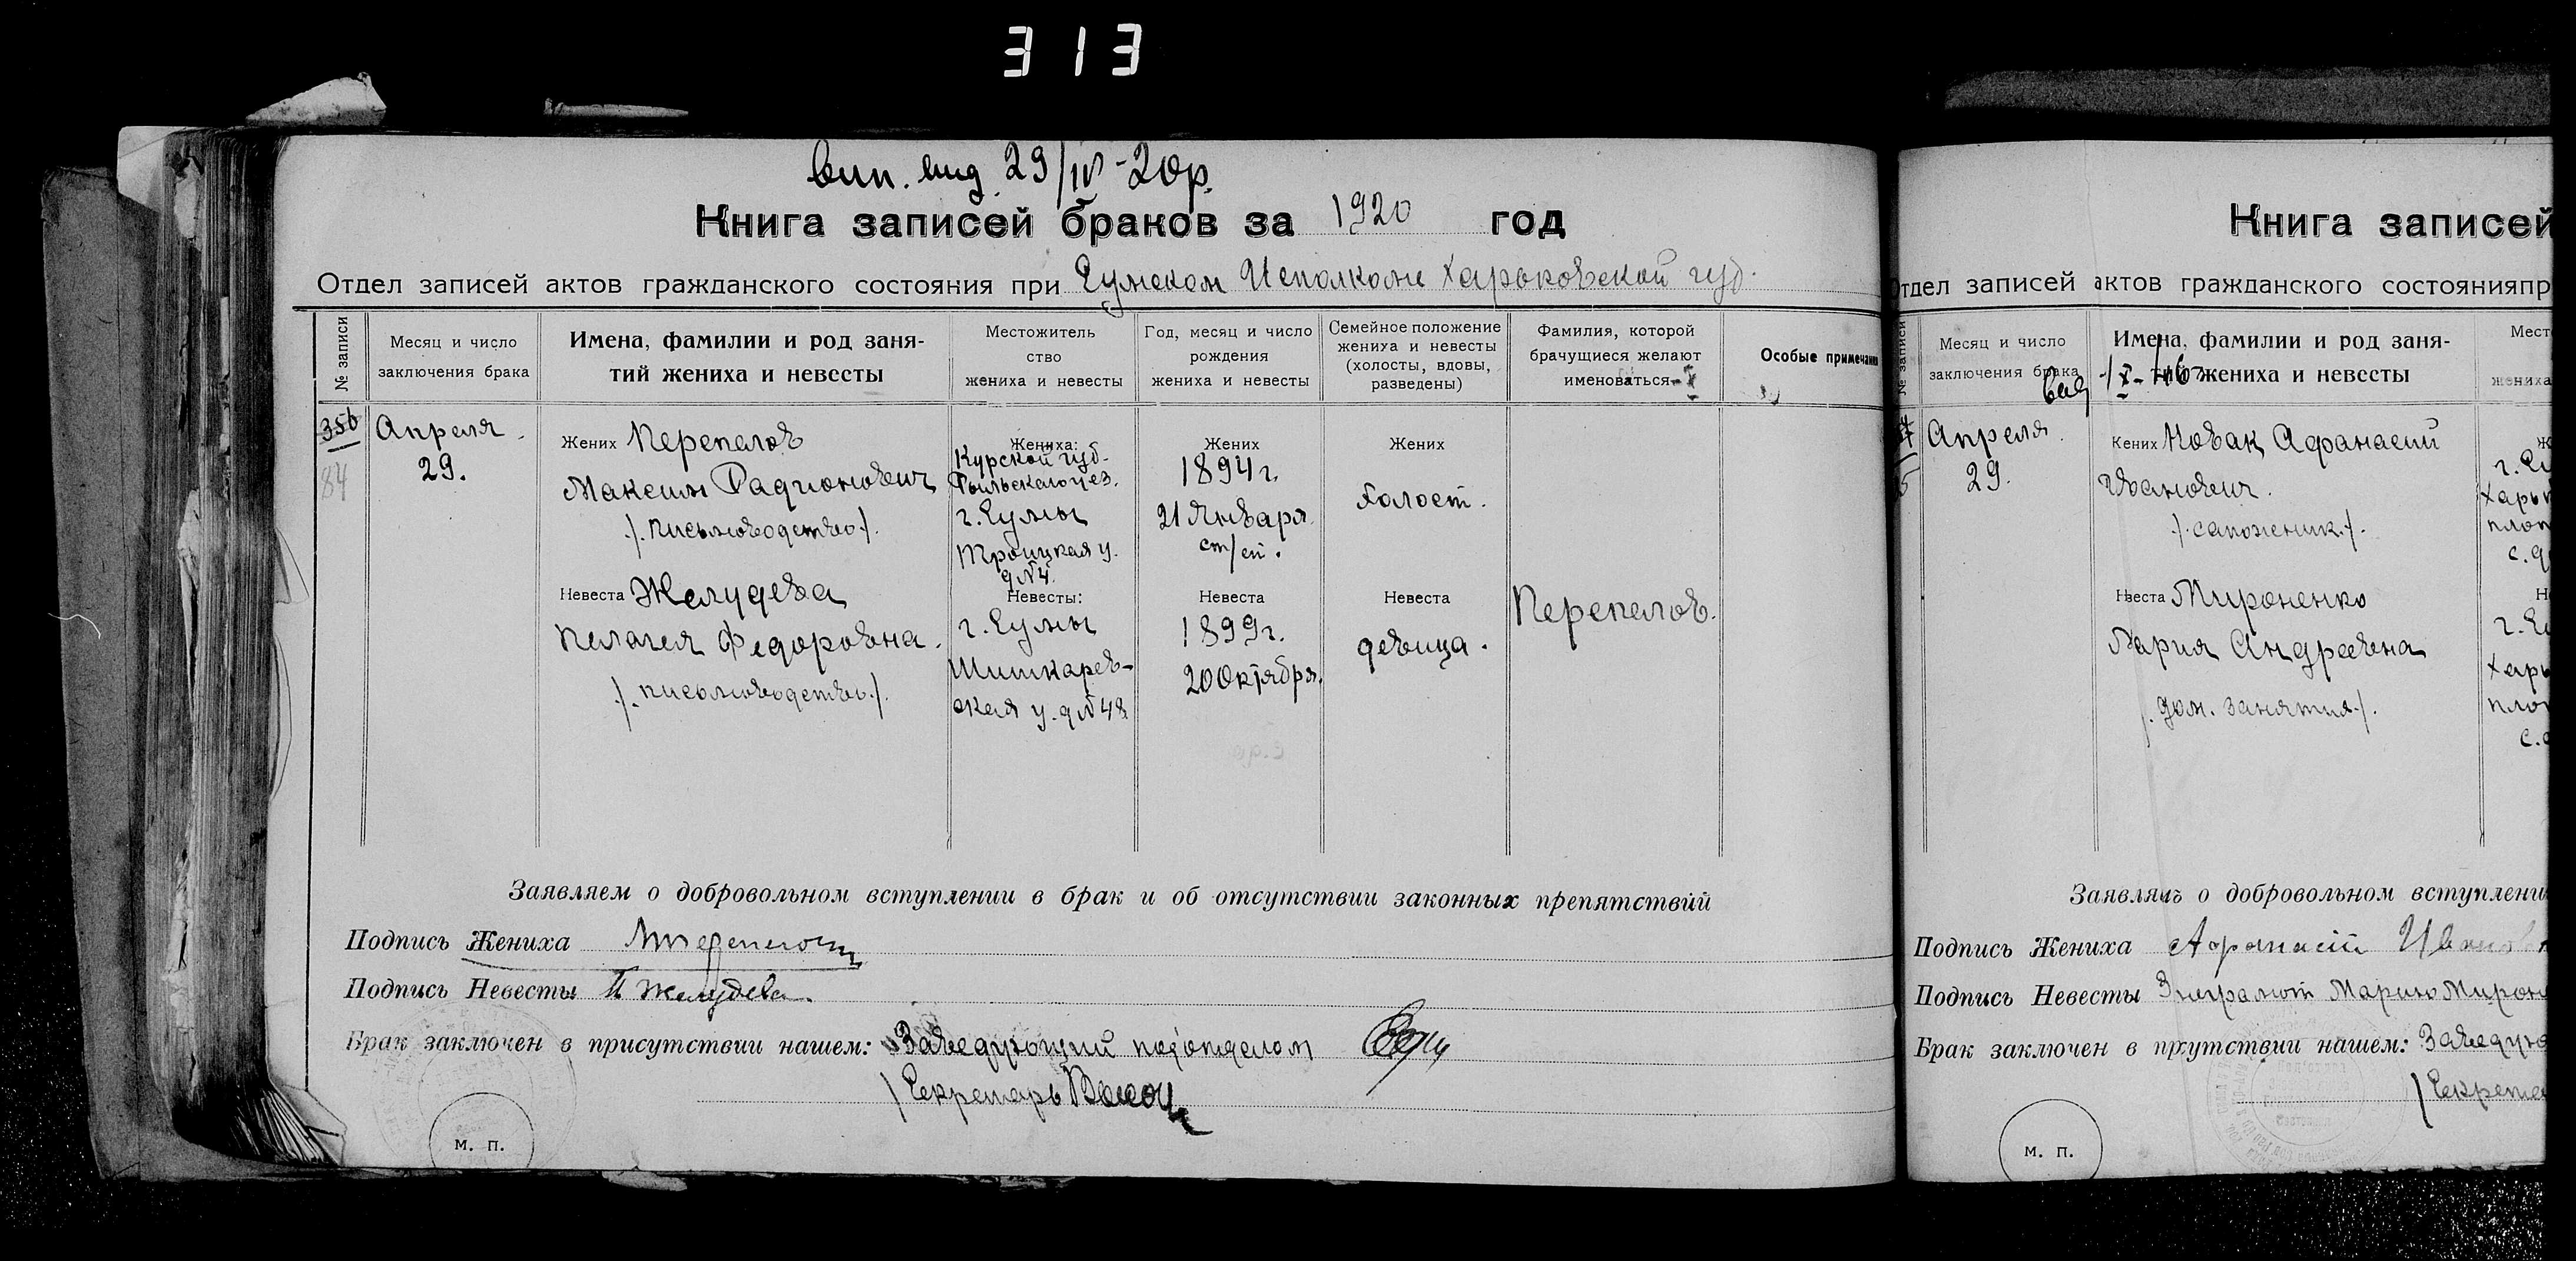 313
вип. вид. 29/IV-20р.
Книга записей браков за 1920 год
Отдел записей актов гражданского состояния при Сумском Исполкоме Харьковской губ.
№ записи
Месяц и число
заключения брака
Имена, фамилии и род заня-
тий жениха и невесты
Местожитель
ство
жениха и невесты
Год, месяц и число
рождения
жениха и невесты
Семейное положение
жениха и невесты
(холосты, вдовы,
разведены)
Фамилия, которой
брачущиеся желают
именоваться
Особые примечани
356
84
Апреля
29.
Жених Перепелов
Максим Радионович
/. письмоводство./.
Жениха:
Курской губ.
Рыльского уез.
г. Сумы
Троицкая у.
д№4.
Жених
1894 г.
21 Января
ст/ст.
Жених
холост.
Невеста Желудева
Пелагея Федоровна.
/. письмоводство./.
Невесты:
г. Сумы
Шишкарев-
ская у. д№48.
Невеста
1899 г.
20 Октября.
Невеста
девица.
Перепелов.
Заявляем о добровольном вступлении в брак и об отсутствии законных препятствий
Подпись Жениха МПерепелов
Подпись Невесты П Желудева.
Брак заключен в присутствии нашем: Заведующий подотделом
Секретарь
м. п.
Книга записей
Отдел записей актов гражданского состоянияпр
№ записи
Месяц и число
заключения брака
Имена, фамилии и род заня-
тий жениха и невесты
Мест
жениха
Апреля.
29.
Жених Новак Афанасий
Иванович.
/. сапожник./.
г. Су
Харьк
плот
с. д
Невеста Мироненко
Мария Андреевна
/. дом. занятия./.
г. Су
Харь
плот
с. д
Заявляемъ о добровольном вступлени
Подпись Жениха Афанасий Иванов
Подпись Невесты Неграмот Марию Мирон
Брак заключен в присутствии нашем: Заведую
Секрета
м. п.